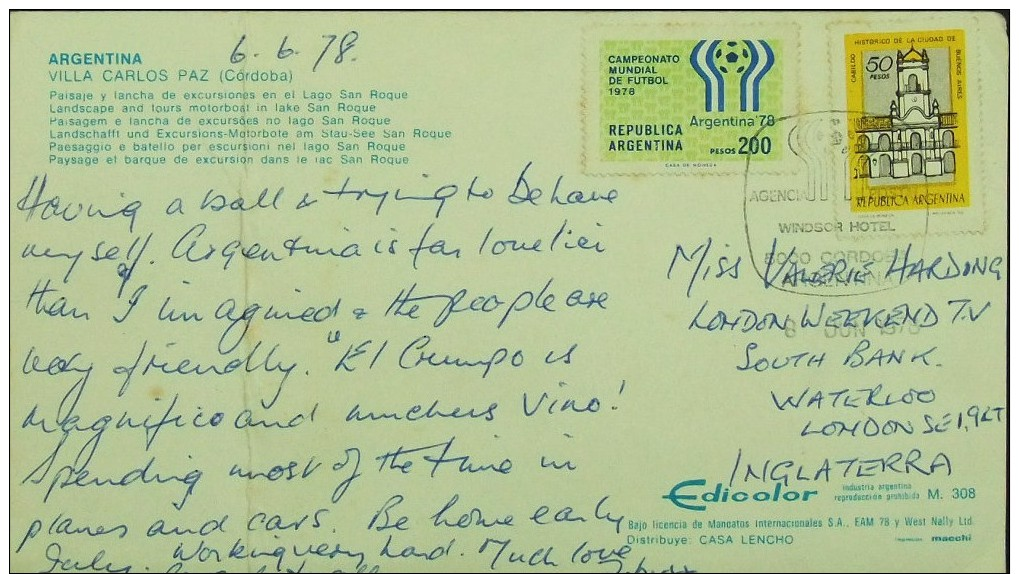 ARGENTINA
VILLA CARLOS PAZ (Córdoba)
Paisaje y lancha de excursiones en el Lago San Roque
Landscape and tours motorboat in lake San Roque
Paisagem e lancha de excursões no lago San Roque
Landschafft und Excursions-Motorbote am Stau-See San Roque
Paesaggio e batello per escursioni nel lago San Roque
Paysage et barque de excursion dans le lac San Roque
6.6.78.
CAMPEONATO
MUNDIAL
DE FUTBOL
1978
Argentina '78
REPUBLICA
ARGENTINA
PESOS 200
CASA DE MONEDA
CABILDO HISTORICO DE LA CIUDAD DE BUENOS AIRES
50
PESOS
REPUBLICA ARGENTINA
AGENCIA
WINDSOR HOTEL
5000 CORDOBA
ARGENTINA
6 JUN 1978
Having a ball & trying to behave
myself. Argentina is far lovelier
than I imagined & the people are
very friendly. "El Crumpo is
magnifico and muchers Vino!
Spending most of the time in
planes and cars. Be home early
July. Working very hard. Much love
Miss VALERIE HARDONG
LONDON WEEKEND TV
SOUTH BANK.
WATERLOO
LONDON SE1, 9LT
INGLATERRA
Edicolor
industria argentina
reproducción prohibida
M. 308
Bajo licencia de Mandatos Internacionales S.A., EAM 78 y West Nally Ltd.
Distribuye: CASA LENCHO
macchi